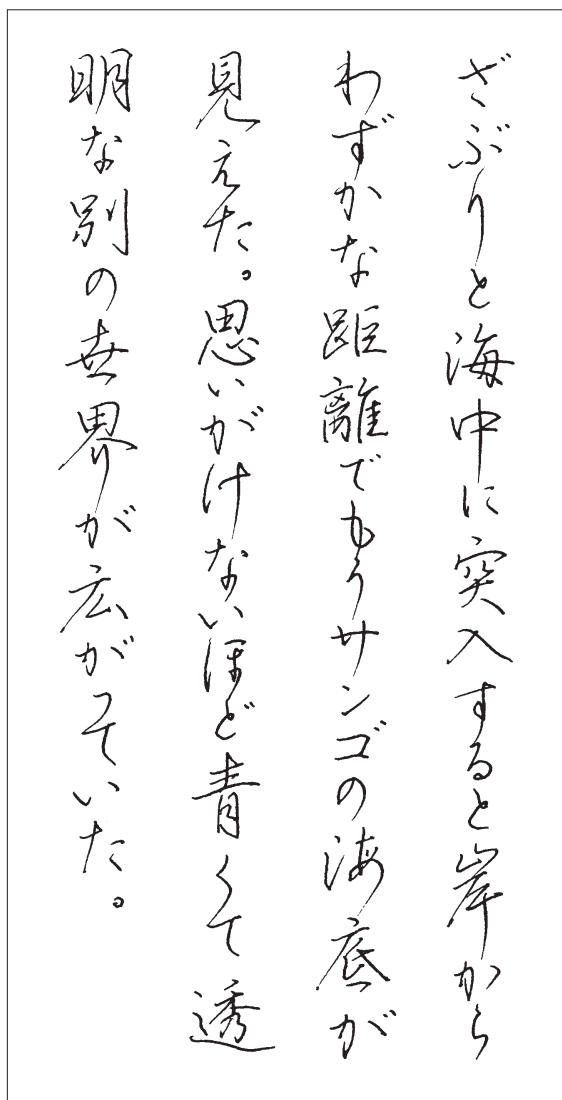 ざぶりと海中に突入すると岸から
わずかな距離でもうサンゴの海底が
見えた。思いがけないほど青くて透
明な別の世界が広がっていた。